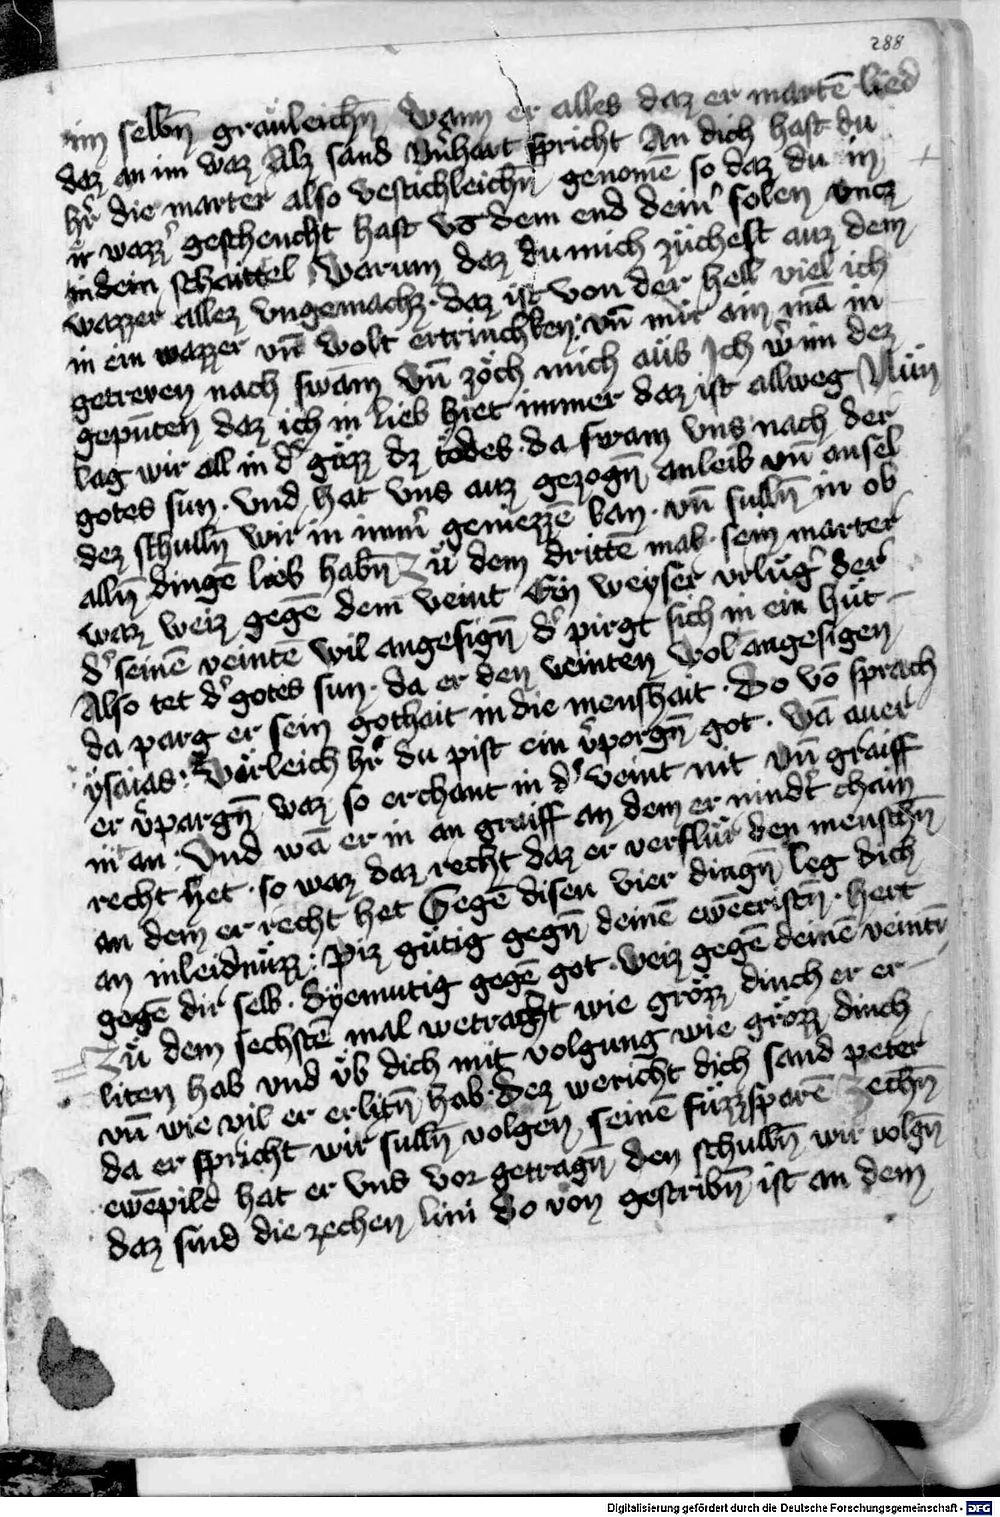 288
im selbñ gräuleichñ Wann er alles daz er martē lied
daz an im waz Alz sand Bn̄hart spricht An dich hast du
hr̄ die marter also vestichleichñ genomē so daz du in
ir wazz̄ geschencht hast vō dem end dein̄ solen vncz
in dein schaittel Warum daz du mich züchest auz dem
wazzer allez vngemachz · daz ist von der hell viel ich
in ein wazzer vn̄ wolt ertrinchken · vn̄ mir ain mā in
getreven nach swam vn̄ zöch mich aüs Ich w̄ im dez
gepūten daz ich in lieb hiet immer daz ist allweg Nün
lag wir all in d̄ güzz dz tödes · da swam vns nach der
gotes sun · vnd hat vns auz gezogñ an leib vn̄ an sel
dez schullñ wir in imm̄ geniezzē lan · vn̄ sullñ in ob
allñ dingē lieb habñ Zü dem drittē mal · sein marter
waz weiz gegē dem veint Ein weyser vrlüḡ der
d̄ seinē veintē wil angesigñ d̄ pirgt sich in ein hüt
Also tet d̄ gotes sun · da er den veinten wol angesigen
da parg er sein gothait in die menshait · Do vō sprach
ysaias : Wärleich hr̄ du pist ein v̄porgñ got · Wā auer
er v̄pargñ waz so erchant in d̄ veint nit vn̄ graiff
in an : Vnd wā er in an graiff an dem er nindt̄ chain
recht het · so waz daz recht daz er verflür den menschñ
an dem er recht het Gegē disen vier dingñ leg dich
an inleidnüzz : Piz gütig gegñ deinē ewēcristñ · hert
gegē dir selb · dyemutig gegē got · weiz gegē deinē veintñ
Zü dem sechstē mal wetracht wie grözz dinch er er
liten hab vnd üb dich mit volgung wie grözz dinch
vn̄ wie vil er erlitñ hab · Dez wericht dich sand peter
da er spricht wir sullñ volgen seinē füzzsparē Zechñ
ewēpild hat er vns vor getragñ den schullñ wir volgñ
daz sind die zechen lini do von gestribñ ist an dem
Digitalisierung gefördert durch die Deutsche Forschungsgemeinschaft - DFG